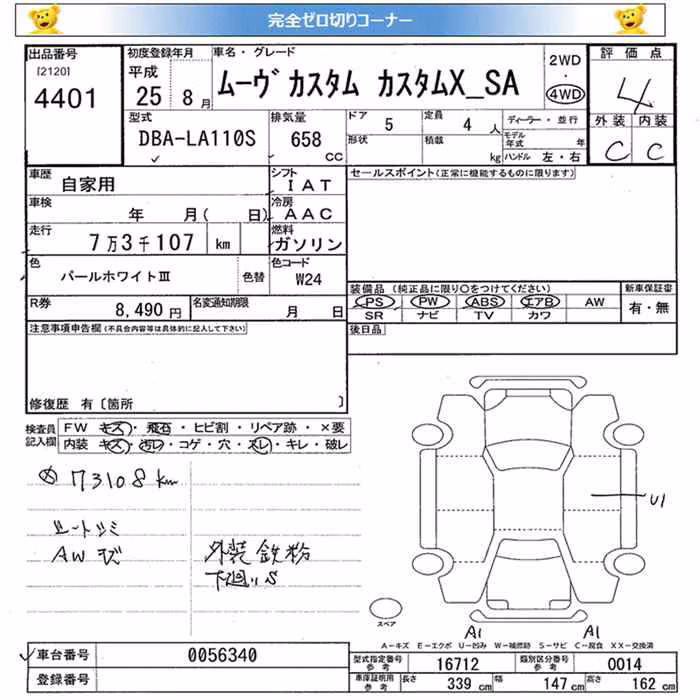 完全ゼロ切りコーナー
出品番号 [2120] 4401
初度登録年月 平成 25年 8月
車名・グレード ムーヴ カスタム カスタムX_SA
2WD ・ 4WD
評価点 4
外装 C 内装 C
型式 DBA-LA110S
排気量 658 CC
ドア 5
定員 4 人
形状
積載 kg
ディーラー・並行
モデル年式 年
ハンドル 左・右
車歴 自家用
シフト IAT
車検 年 月( 日)
冷房 AAC
走行 7万3千107 km
燃料 ガソリン
色 パールホワイトⅢ 色替
色コード W24
R券 8,490 円
名変通知期限 月 日
セールスポイント(正常に機能するものに限ります)
装備品 (純正品に限り〇をつけてください)
PS PW ABS エアB AW
SR ナビ TV カワ
新車保証書 有・無
後日品
注意事項申告欄(不具合内容等は具体的に記入して下さい)
修復歴 有〔箇所 〕
検査員記入欄
FW キズ・飛石・ヒビ割・リペア跡・×要
内装 キズ・汚レ・コゲ・穴・スレ・キレ・破レ
73108km
シートシミ
AWサビ
外装鉄粉
下廻りS
U1
スペア
A1 A1
A−キズ E−エクボ U−凹み W−補修跡 S−サビ C−腐食 XX−交換済
車台番号 0056340
登録番号
型式指定番号 参考 16712
類別区分番号 参考 0014
車庫証明用 参考 長さ 339 cm 幅 147 cm 高さ 162 cm